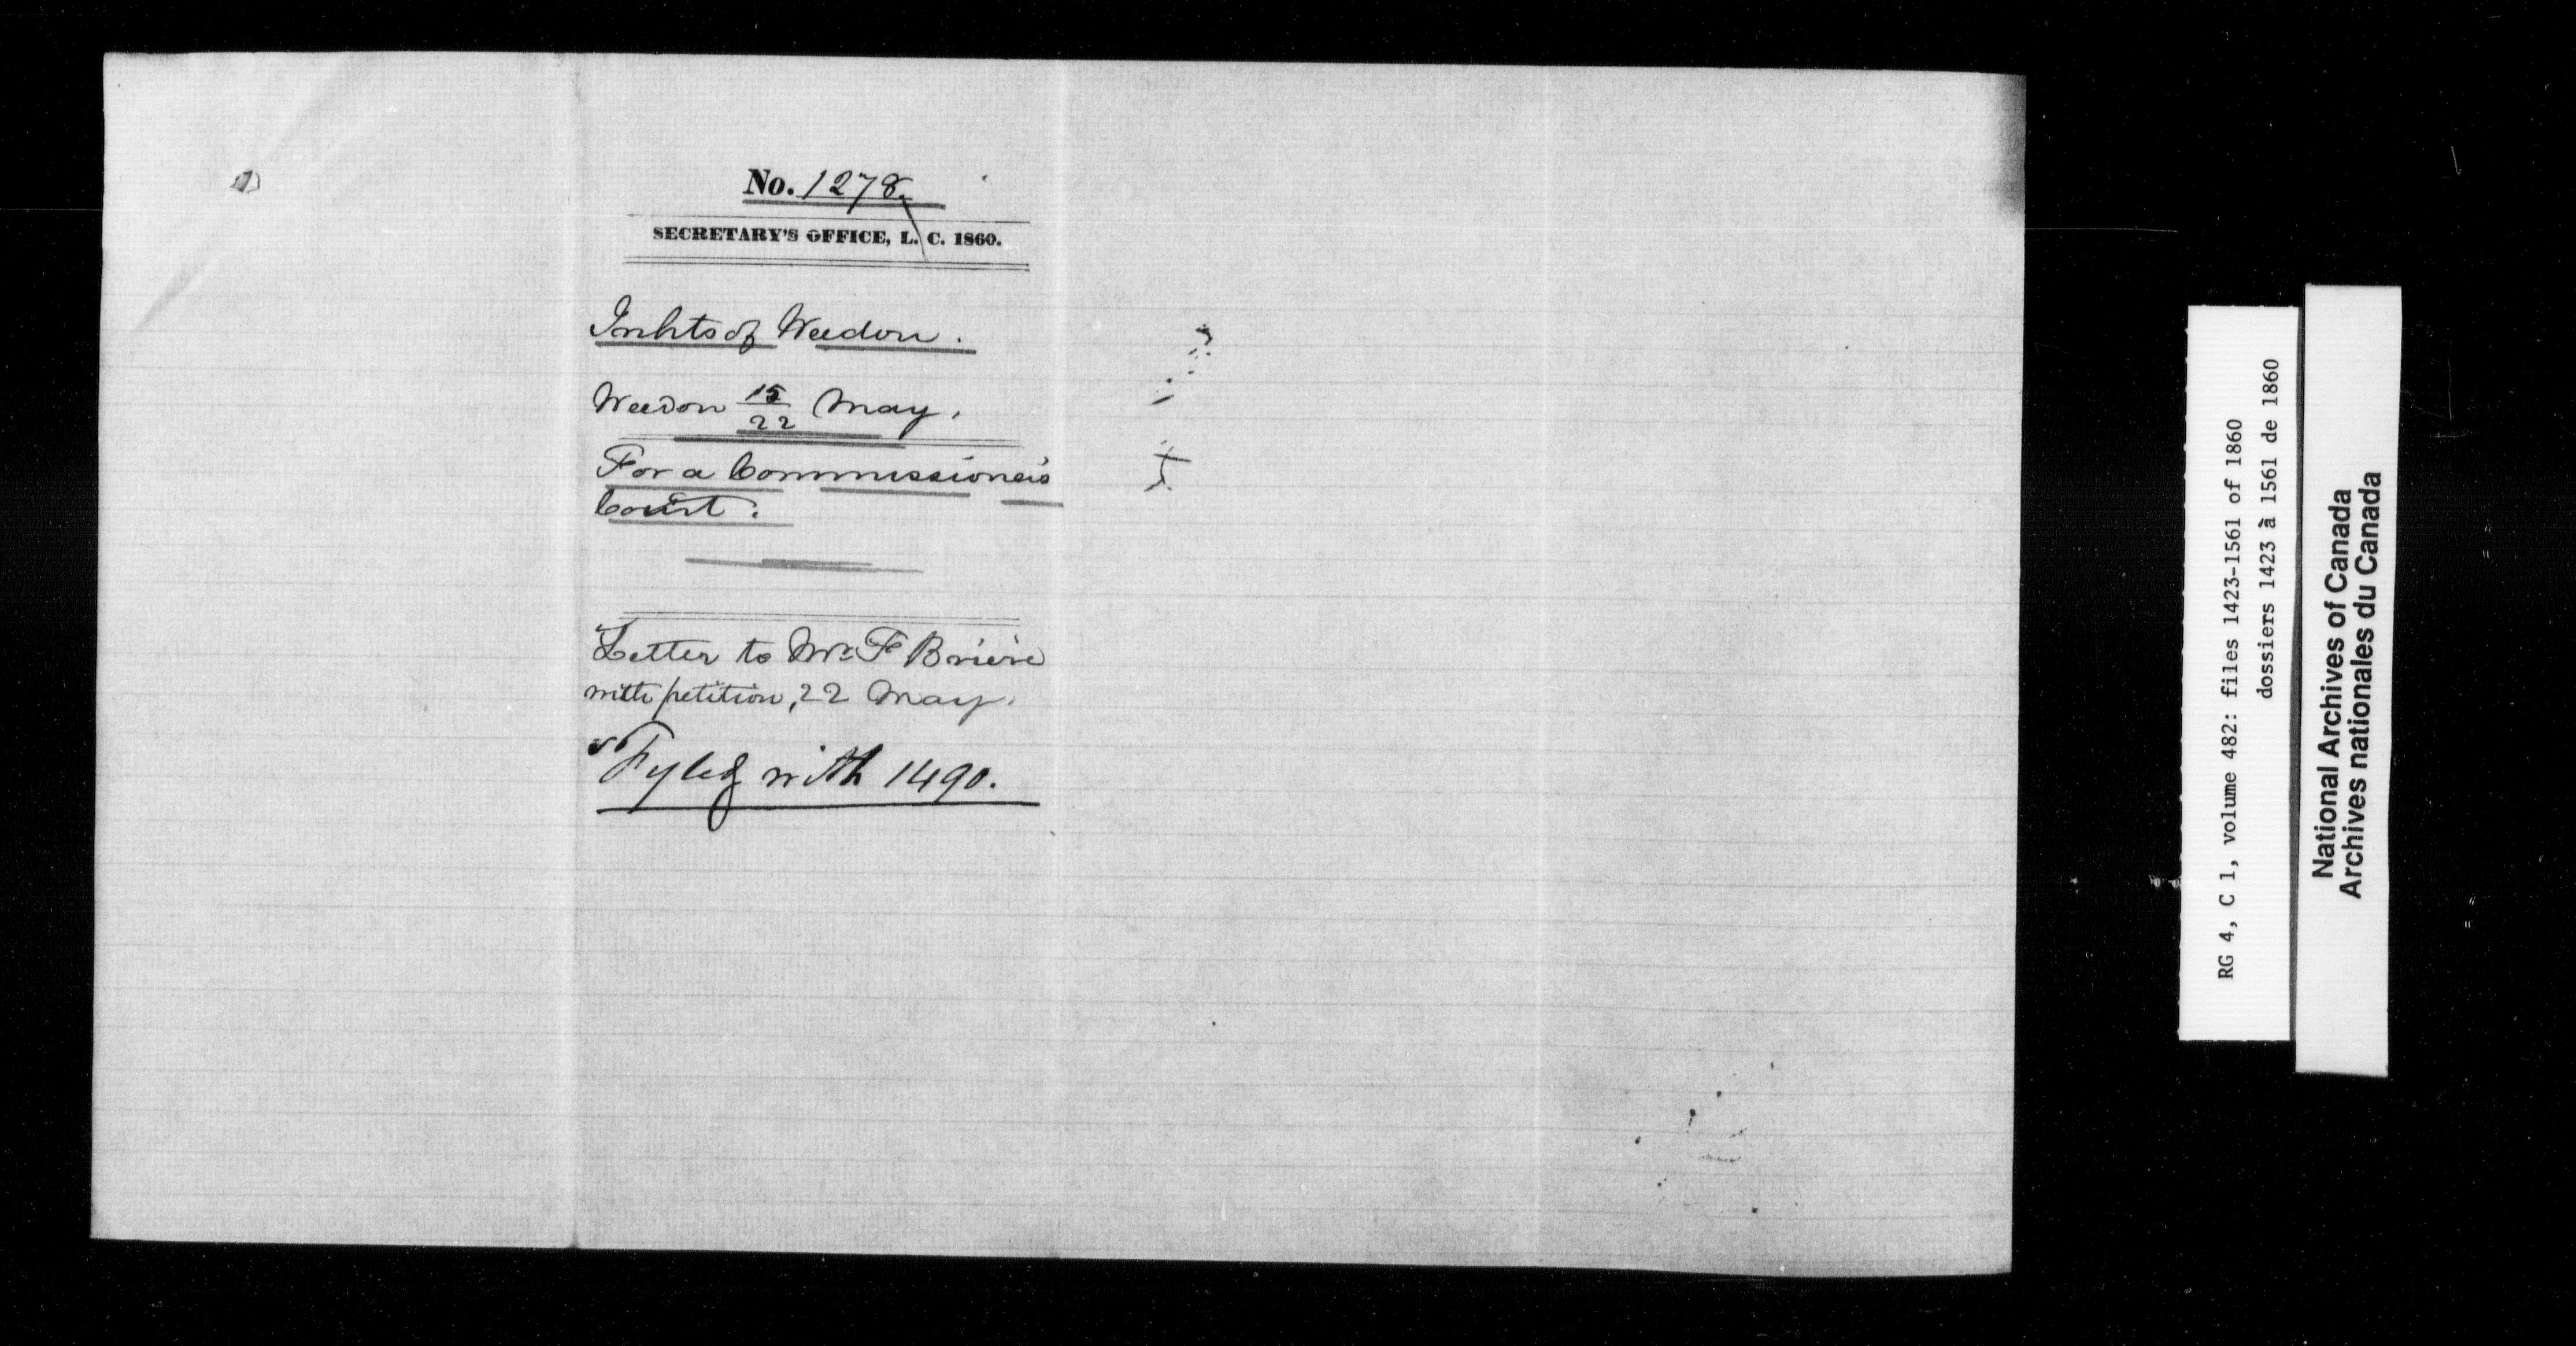 No. 1278.
SECRETARY'S OFFICE, L. C. 1860.
Inhts of Weedon.
Weedon 15/22 May.
For a Commissioners
Court.
Letter to Mr. F Brière
with petition, 22 May.
Fyled with 1490.
RG 4, C 1, volume 482: files 1423-1561 of 1860
dossiers 1423 à 1561 de 1860
National Archives of Canada
Archives nationales du Canada